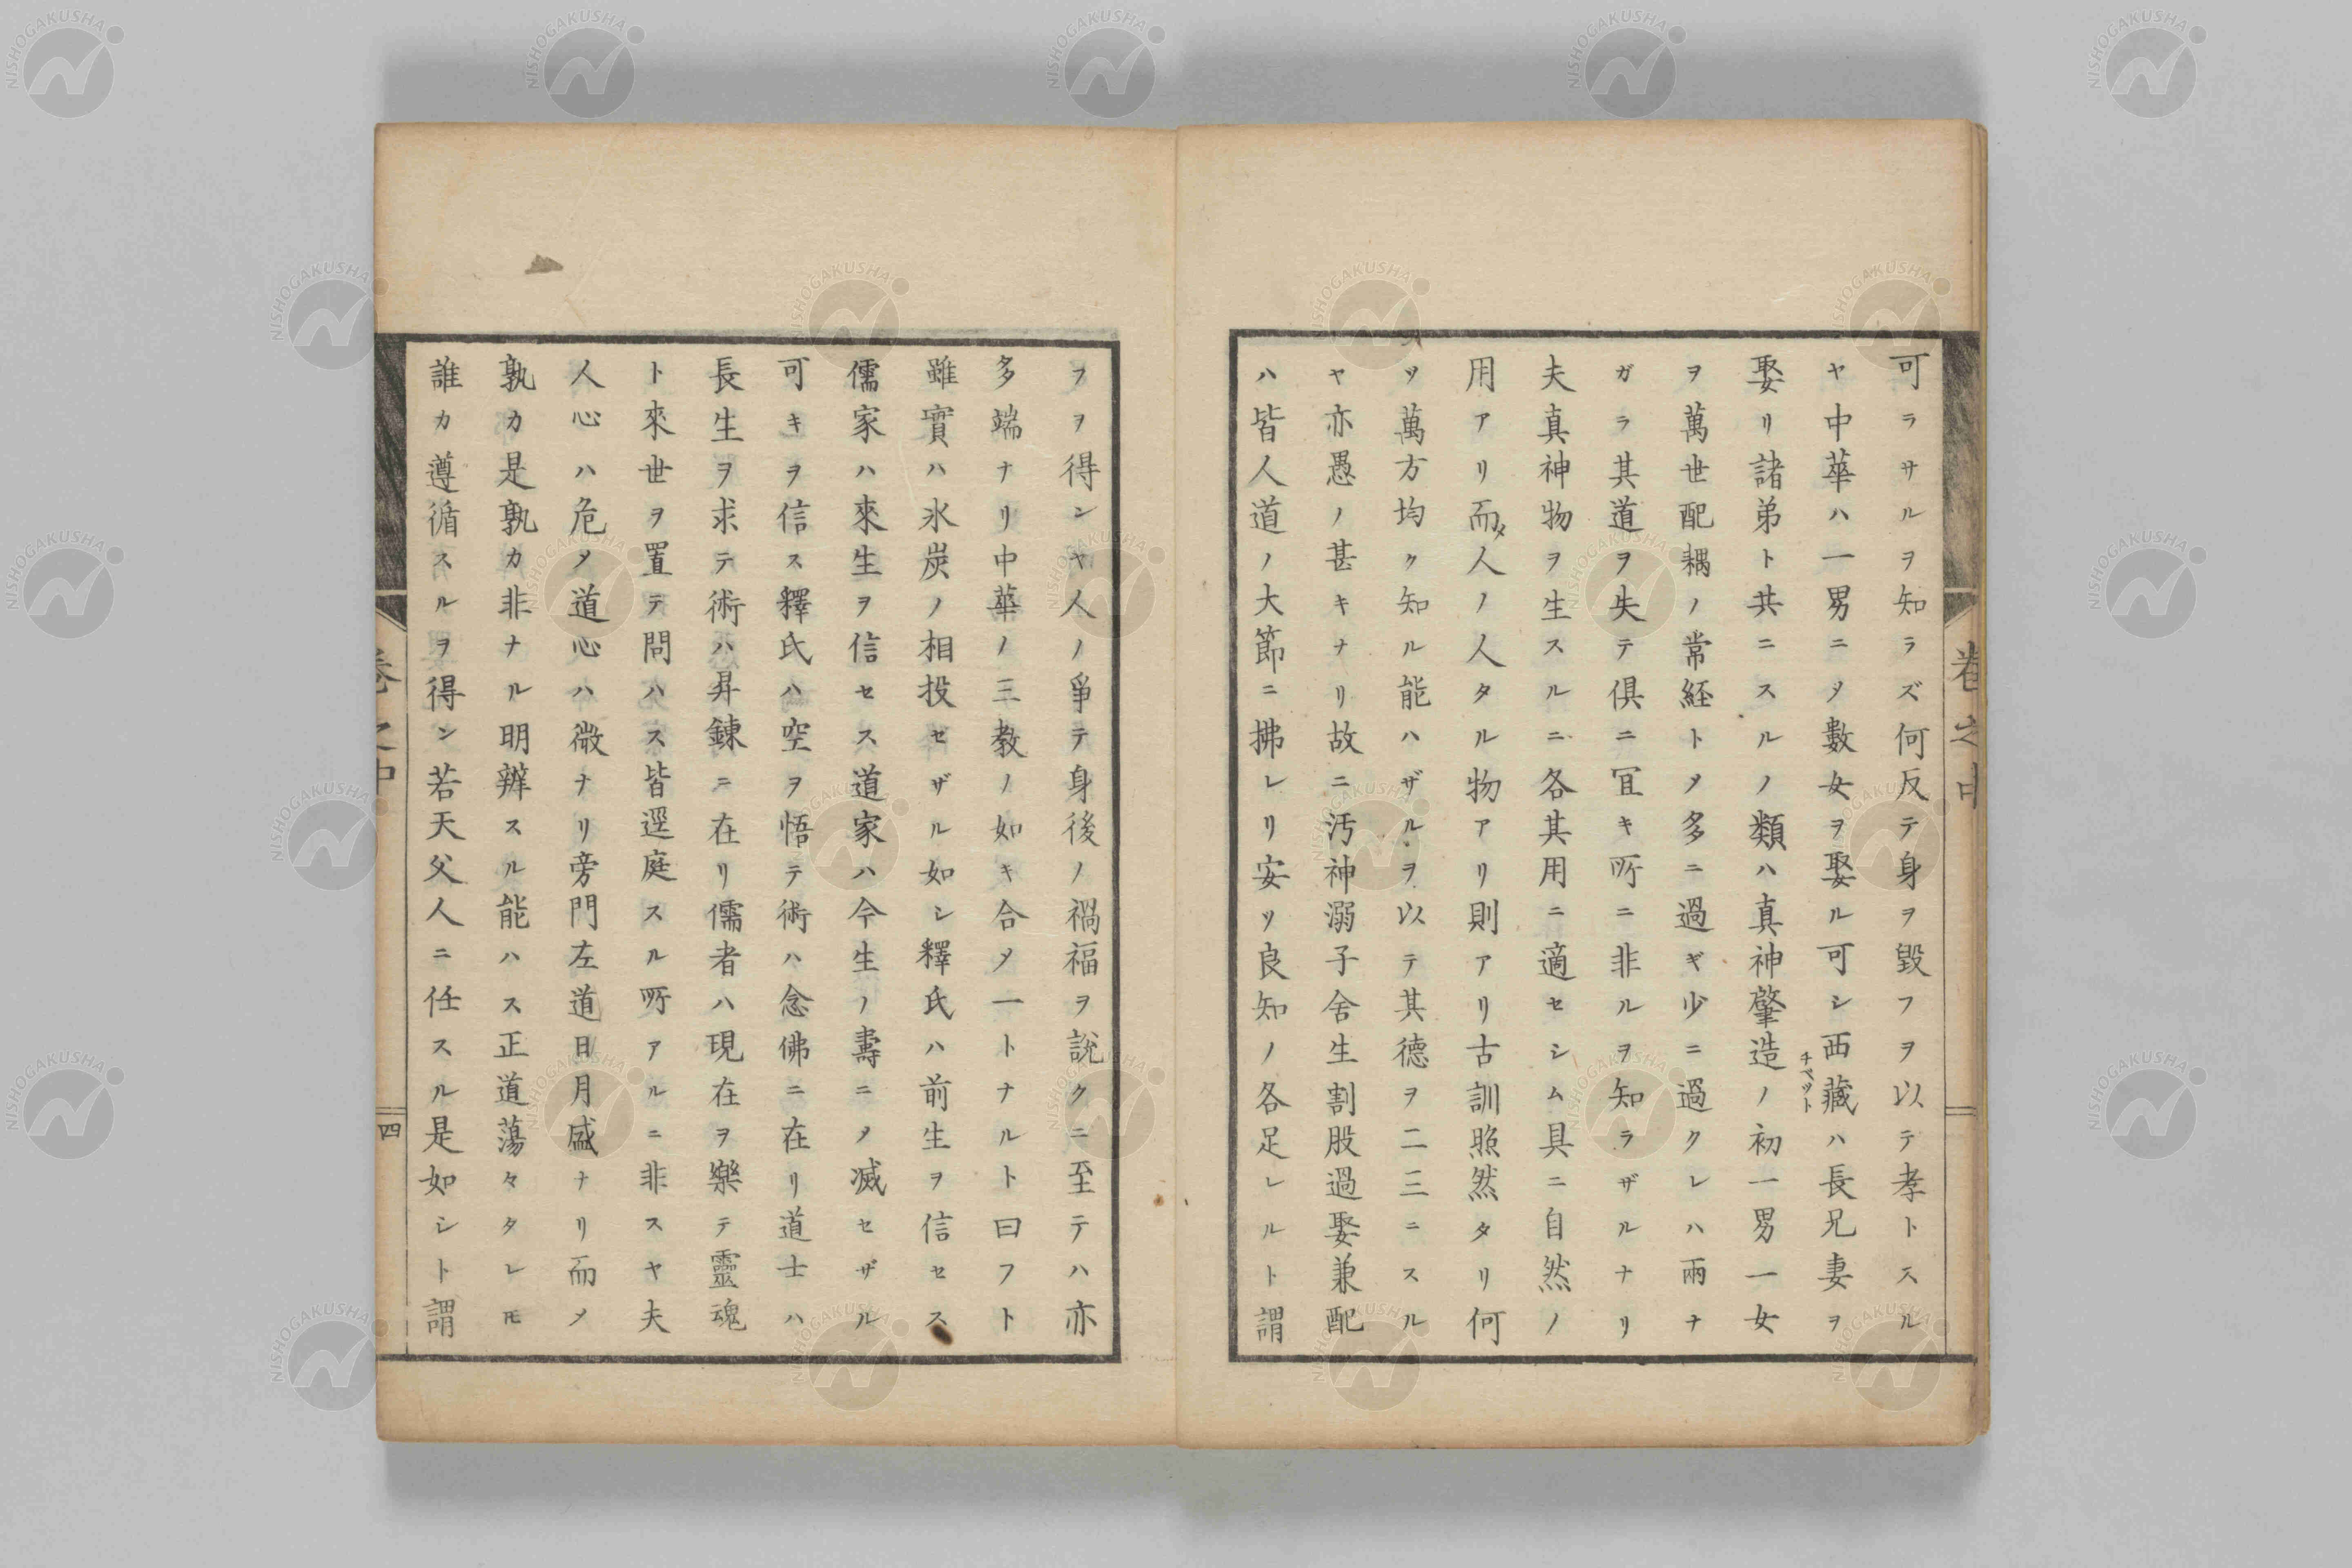 可ラサルヲ知ラズ何反テ身ヲ毀フヲ以テ孝トスル
ヤ中華ハ一男ニメ數女ヲ娶ル可シ西藏ハ長兄妻ヲ
チベット
娶リ諸弟ト共ニスルノ類ハ真神肇造ノ初一男一女
ヲ萬世配耦ノ常経トメ多ニ過ギ少ニ過クレハ兩ナ
ガラ其道ヲ失テ俱ニ冝キ所ニ非ルヲ知ラザルナリ
夫真神物ヲ生スルニ各其用ニ適セシム具ニ自然ノ
用アリ而メ人ノ人タル物アリ則アリ古訓照然タリ何
ツ萬方均ク知ル能ハザルヲ以テ其德ヲ二三ニスル
ヤ亦愚ノ甚キナリ故ニ汚神溺子舍生割股過娶兼配
ハ皆人道ノ大節ニ拂レリ安ツ良知ノ各足レルト謂
卷之中
ヲヲ得ンヤ人ノ爭テ身後ノ禍福ヲ説クニ至テハ亦
多端ナリ中華ノ三教ノ如キ合メ一トナルト曰フト
雖實ハ氷炭ノ相投セザル如シ釋氏ハ前生ヲ信セス
儒家ハ來生ヲ信セス道家ハ今生ノ壽ニメ滅セザル
可キヲ信ス釋氏ハ空ヲ悟テ術ハ念佛ニ在リ道士ハ
長生ヲ求テ術ハ昇錬ニ在リ儒者ハ現在ヲ樂テ靈魂
ト來世ヲ置テ問ハス皆逕庭スル所アルニ非スヤ夫
人心ハ危メ道心ハ微ナリ旁門左道日月盛ナリ而メ
孰カ是孰カ非ナル明辨スル能ハス正道蕩々タレ𪜈
誰カ遵循スルヲ得ン若天父人ニ任スル是如シト謂
卷之中
四
NISHOGAKUSHA